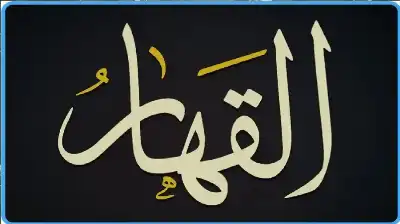 القهار